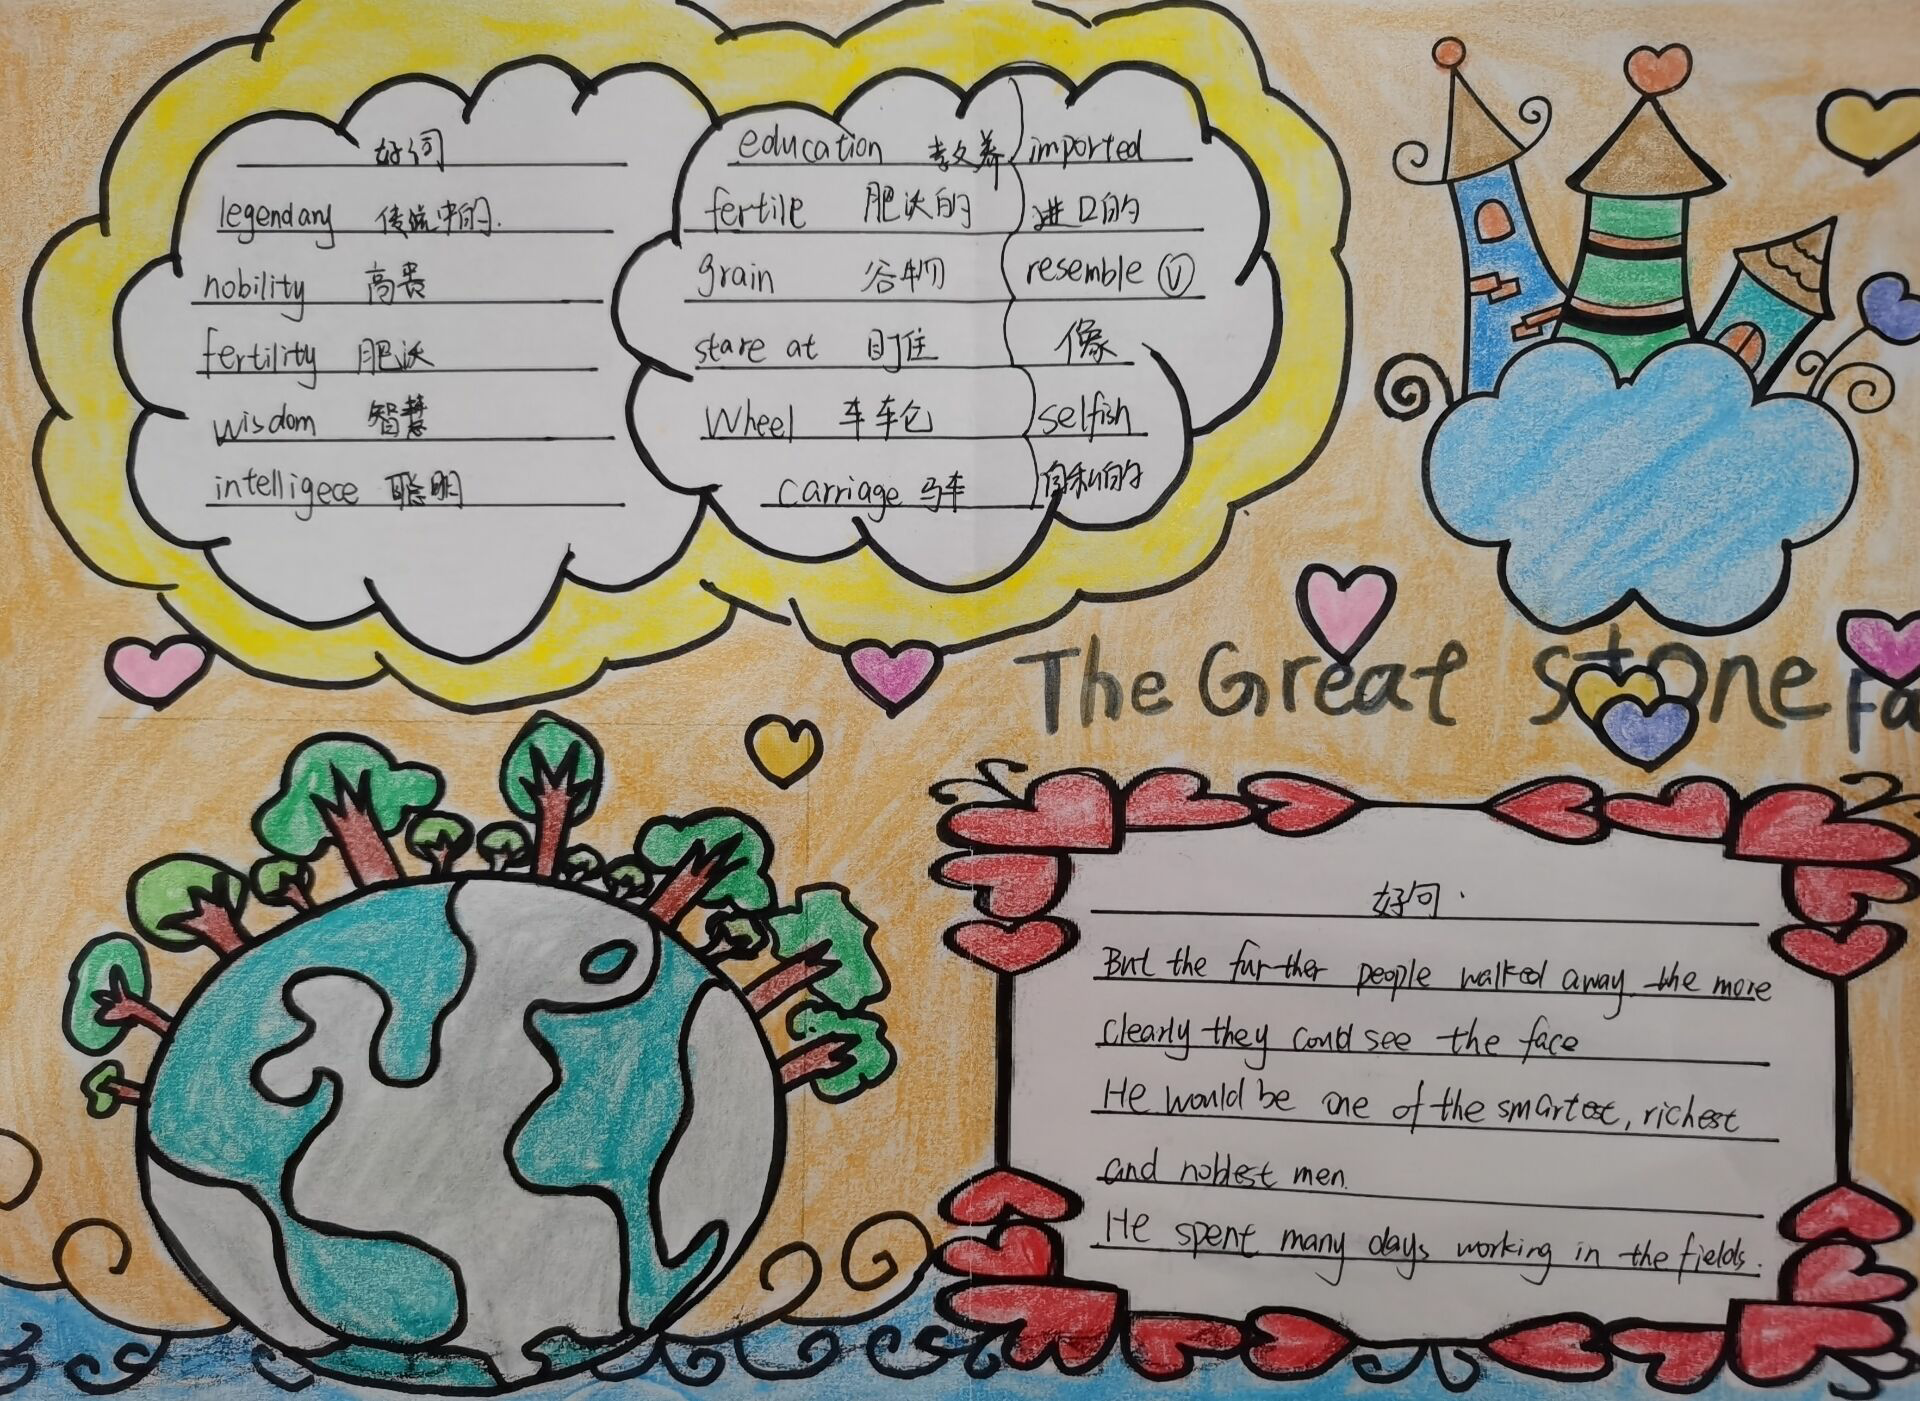 好词
legendary 传说中的.
nobility 高贵
fertility 肥沃
wisdom 智慧
intelligece 聪明
education 教养
fertile 肥沃的
grain 谷物
stare at 盯住
Wheel 车车仑
carriage 马车
imported
进口的
resemble Ⓥ
像
selfish
自私的
The Great Stone Fa
好句.
But the further people walked away the more
clearly they could see the face
He would be one of the smartest, richest
and noblest men.
He spent many days working in the fields.